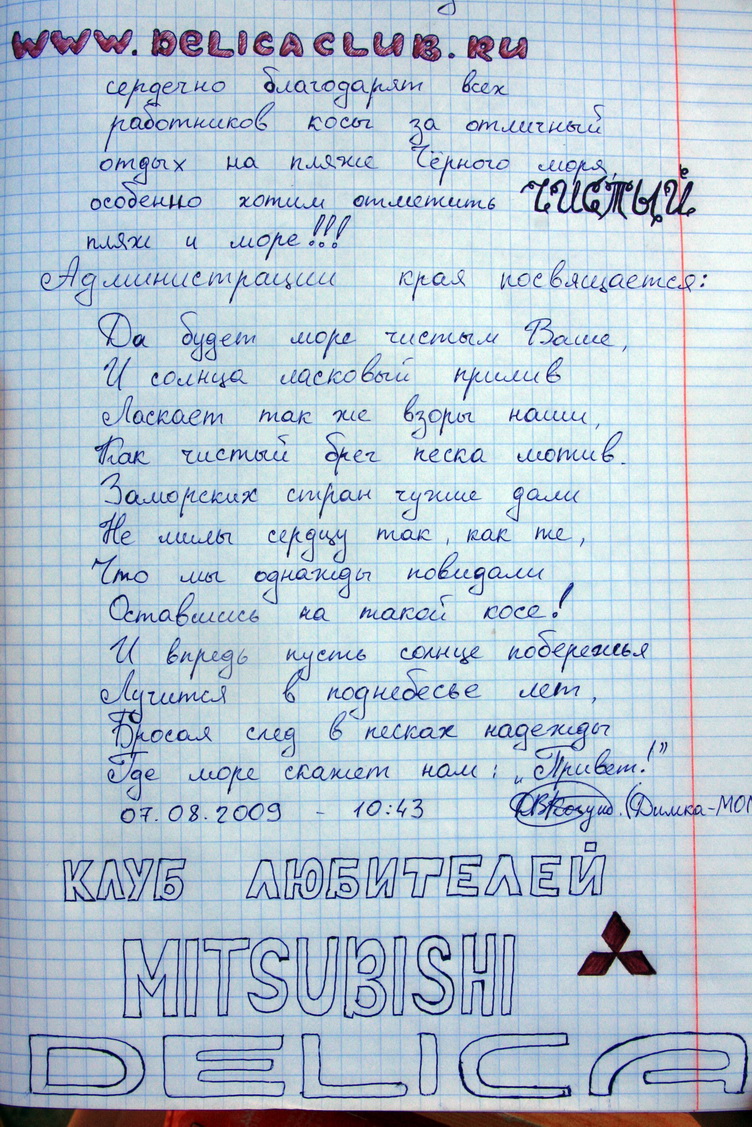 WWW.DELICACLUB.RU
сердечно благодарят всех
работников косы за отличный
отдых на пляже Чёрного моря,
особенно хотим отметить чистый
пляж и море!!!
Администрации края посвящается:
Да будет море чистым Ваше,
И солнца ласковый прилив
Ласкает так же взоры наши,
Как чистый брег песка мотив.
Заморских стран чужие дали
Не милы сердцу так, как те,
Что мы однажды повидали
Оставшись на такой косе!
И впредь пусть солнце побережья
Лучится в поднебесье лет,
Бросая след в песках надежды
Где море скажет нам: „Привет!"
07.08.2009 - 10:43 (Димка-МОМ
КЛУБ ЛЮБИТЕЛЕЙ
MITSUBISHI
DELICA